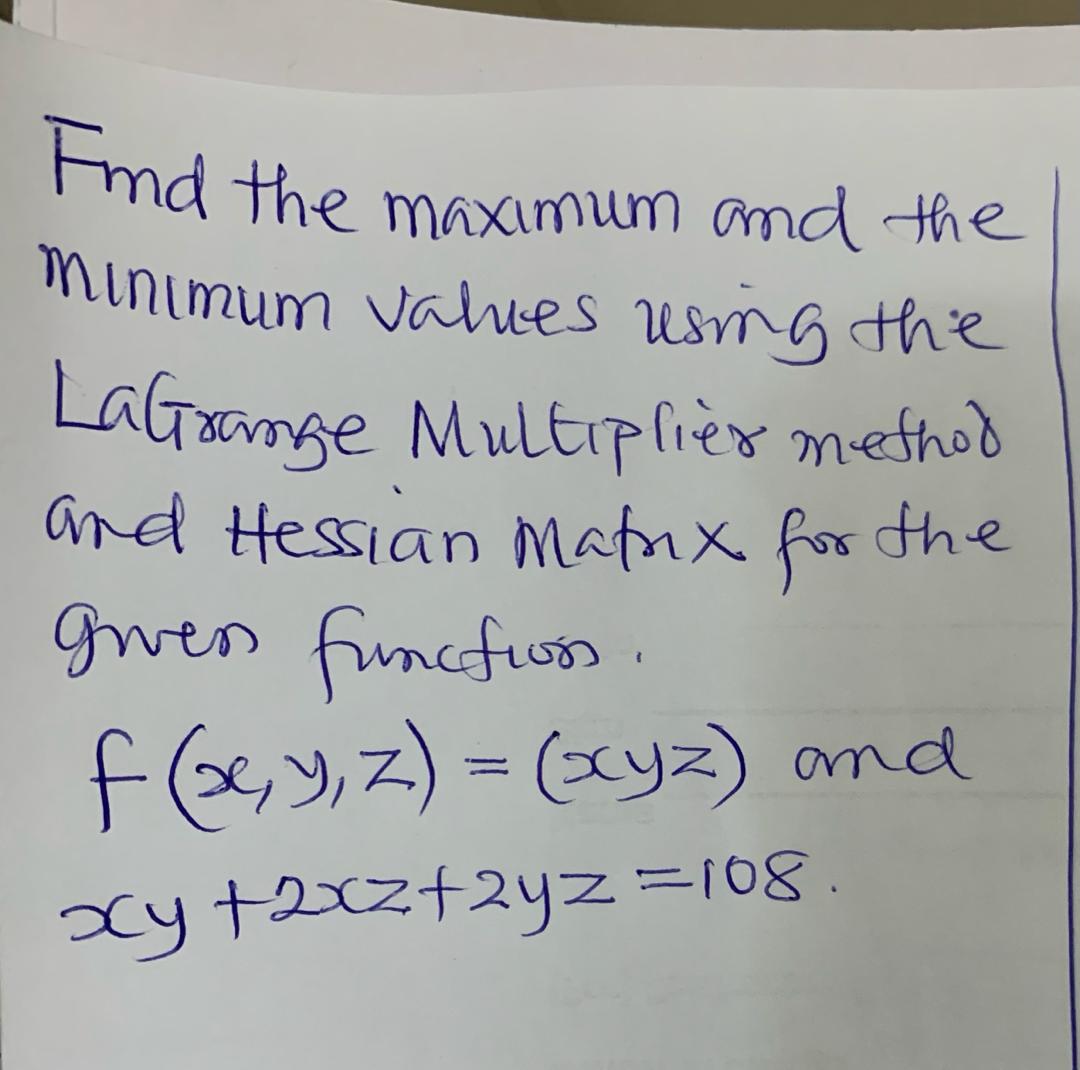 Find the maximum and the
minimum values using the
LaGrange Multiplier method
and Hessian Matrix for the
given function.
f(x,y,z) = (xyz) and
xy+2xz+2yz=108.